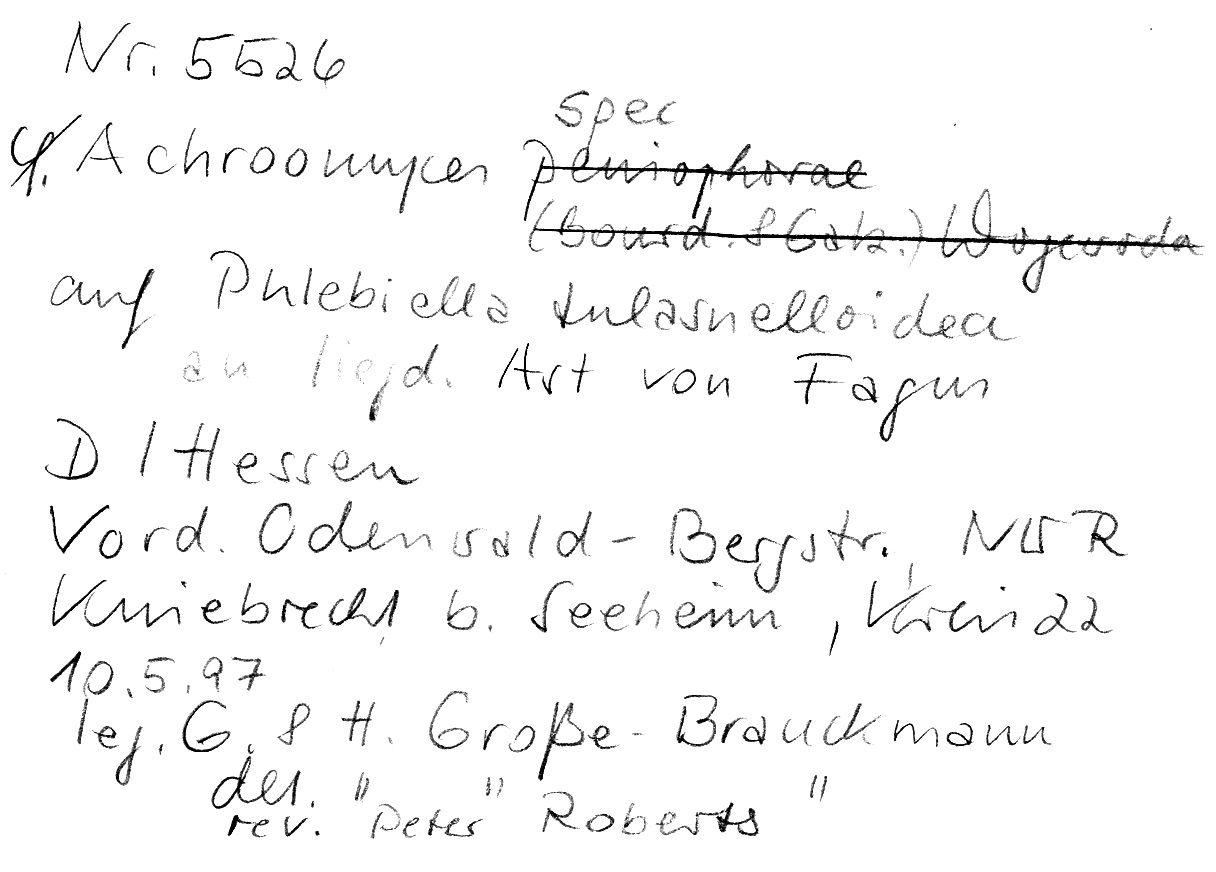 Nr. 5526
spec
Cf. Achroomyces peniophorae
(Bourd. & Galz.) Wojewoda
auf Phlebiella tulasnelloidea
an liegd. Ast von Fagus
D / Hessen
Vord. Odenwald - Bergstr., NWR
Kniebrecht b. Seeheim, Kreis 22
10.5.97
leg. G. & H. Große-Brauckmann
det. " " "
rev. Peter Roberts